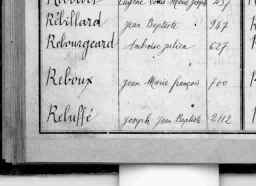 Rébillard Jean Baptiste 947
Rebourgeard Ambroise Julien 627
Reboux Jean Marie françois 700
Rebuffé Joseph Jean Baptiste 2112